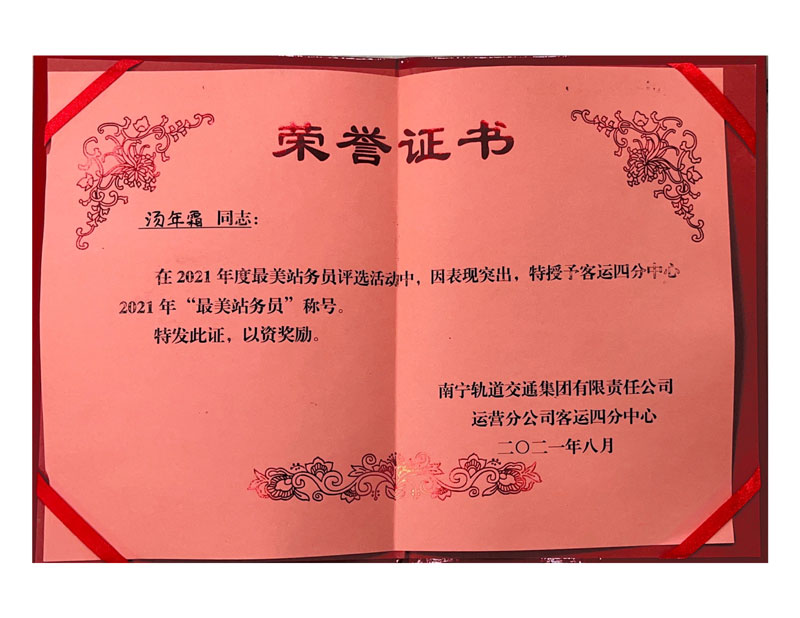 荣誉证书
汤年霜 同志：
在 2021 年度最美站务员评选活动中，因表现突出，特授予客运四分中心
2021 年“最美站务员”称号。
特发此证，以资奖励。
南宁轨道交通集团有限责任公司
运营分公司客运四分中心
二〇二一年八月